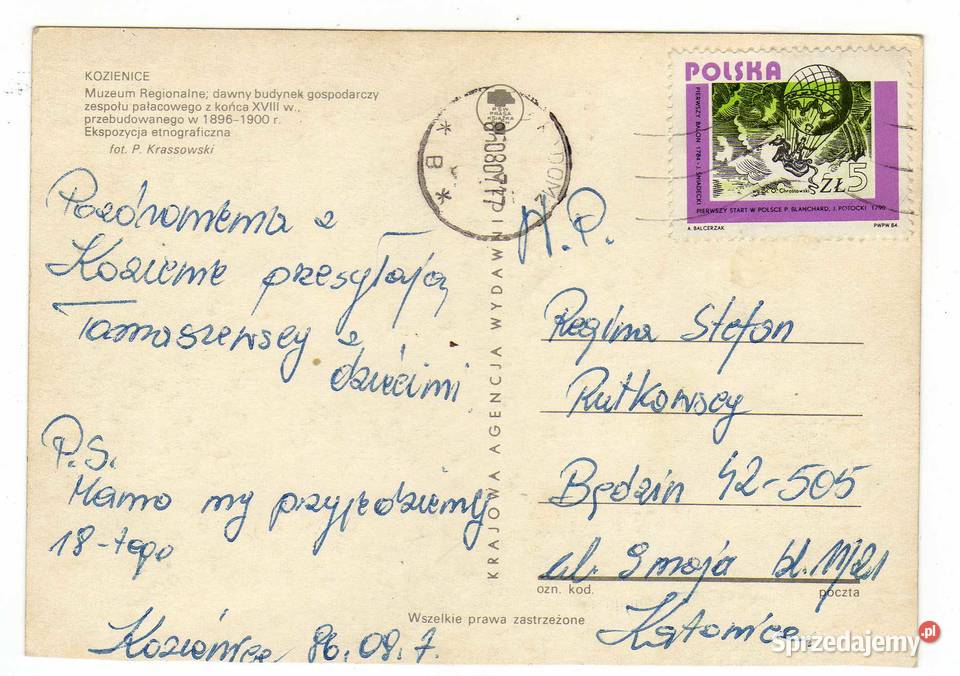 KOZIENICE
Muzeum Regionalne; dawny budynek gospodarczy
zespołu pałacowego z końca XVIII w.,
przebudowanego w 1896-1900 r.
Ekspozycja etnograficzna
fot. P. Krassowski
Pozdrowienia z
Kozienic przesyłają
Tomaszewscy z
dziećmi
P.S.
Mamo my przyjedziemy
18-tego
Kozienice 86.08.7.
KRAJOWA AGENCJA WYDAWNICZA
PSW
PRASA
KSIĄŻKA
RUCH
RADOM
B
POLSKA
PIERWSZY BALON 1784 - J. ŚNIADECKI
O. Chrostowski
ZŁ 5
PIERWSZY START W POLSCE P. BLANCHARD, J. POTOCKI 1790
A. BALCERZAK
PWPW 84
H.P.
Regina Stefan
Rutkowscy
Będzin 42-505
ul. 9 maja bl. 11/21
ozn. kod.
poczta
Katowice
Wszelkie prawa zastrzeżone
Sprzedajemy.pl